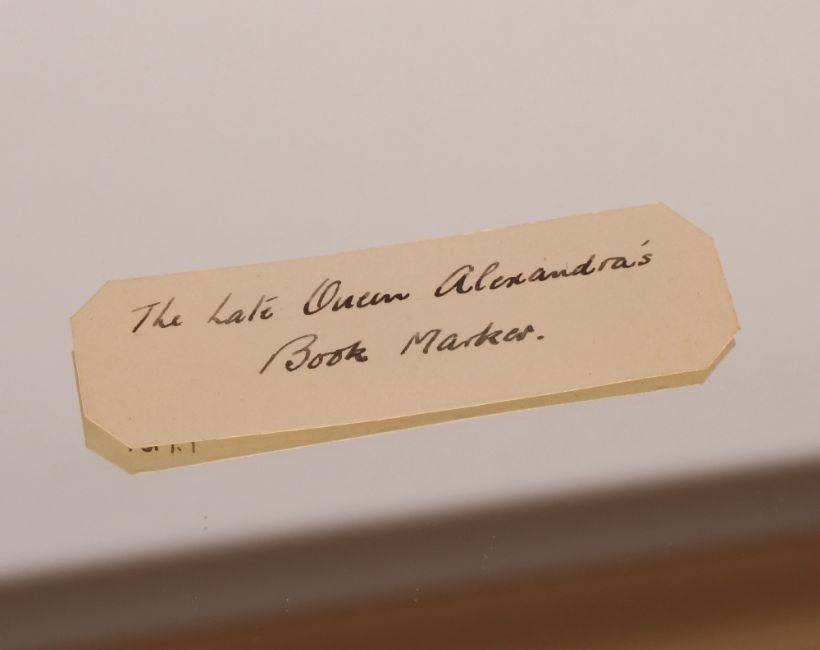 The Late Queen Alexandra's
Book Marker.